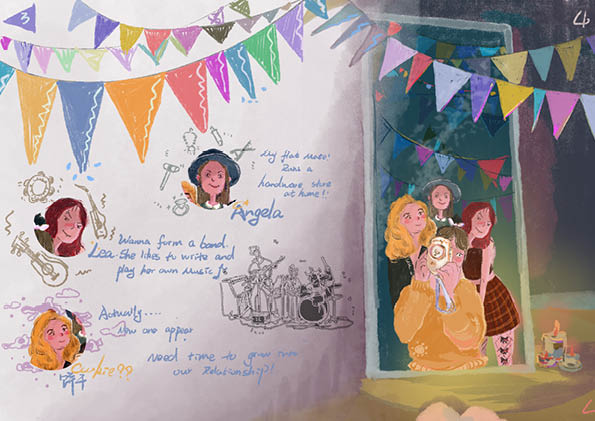 3
4
My flat mate!
Runs a
hardware store
at home!!
Angela
Wanna form a band.
Lea. She likes to write and
play her own music!
Actually....
New one appear
??
Need time to grow
our Relationship!